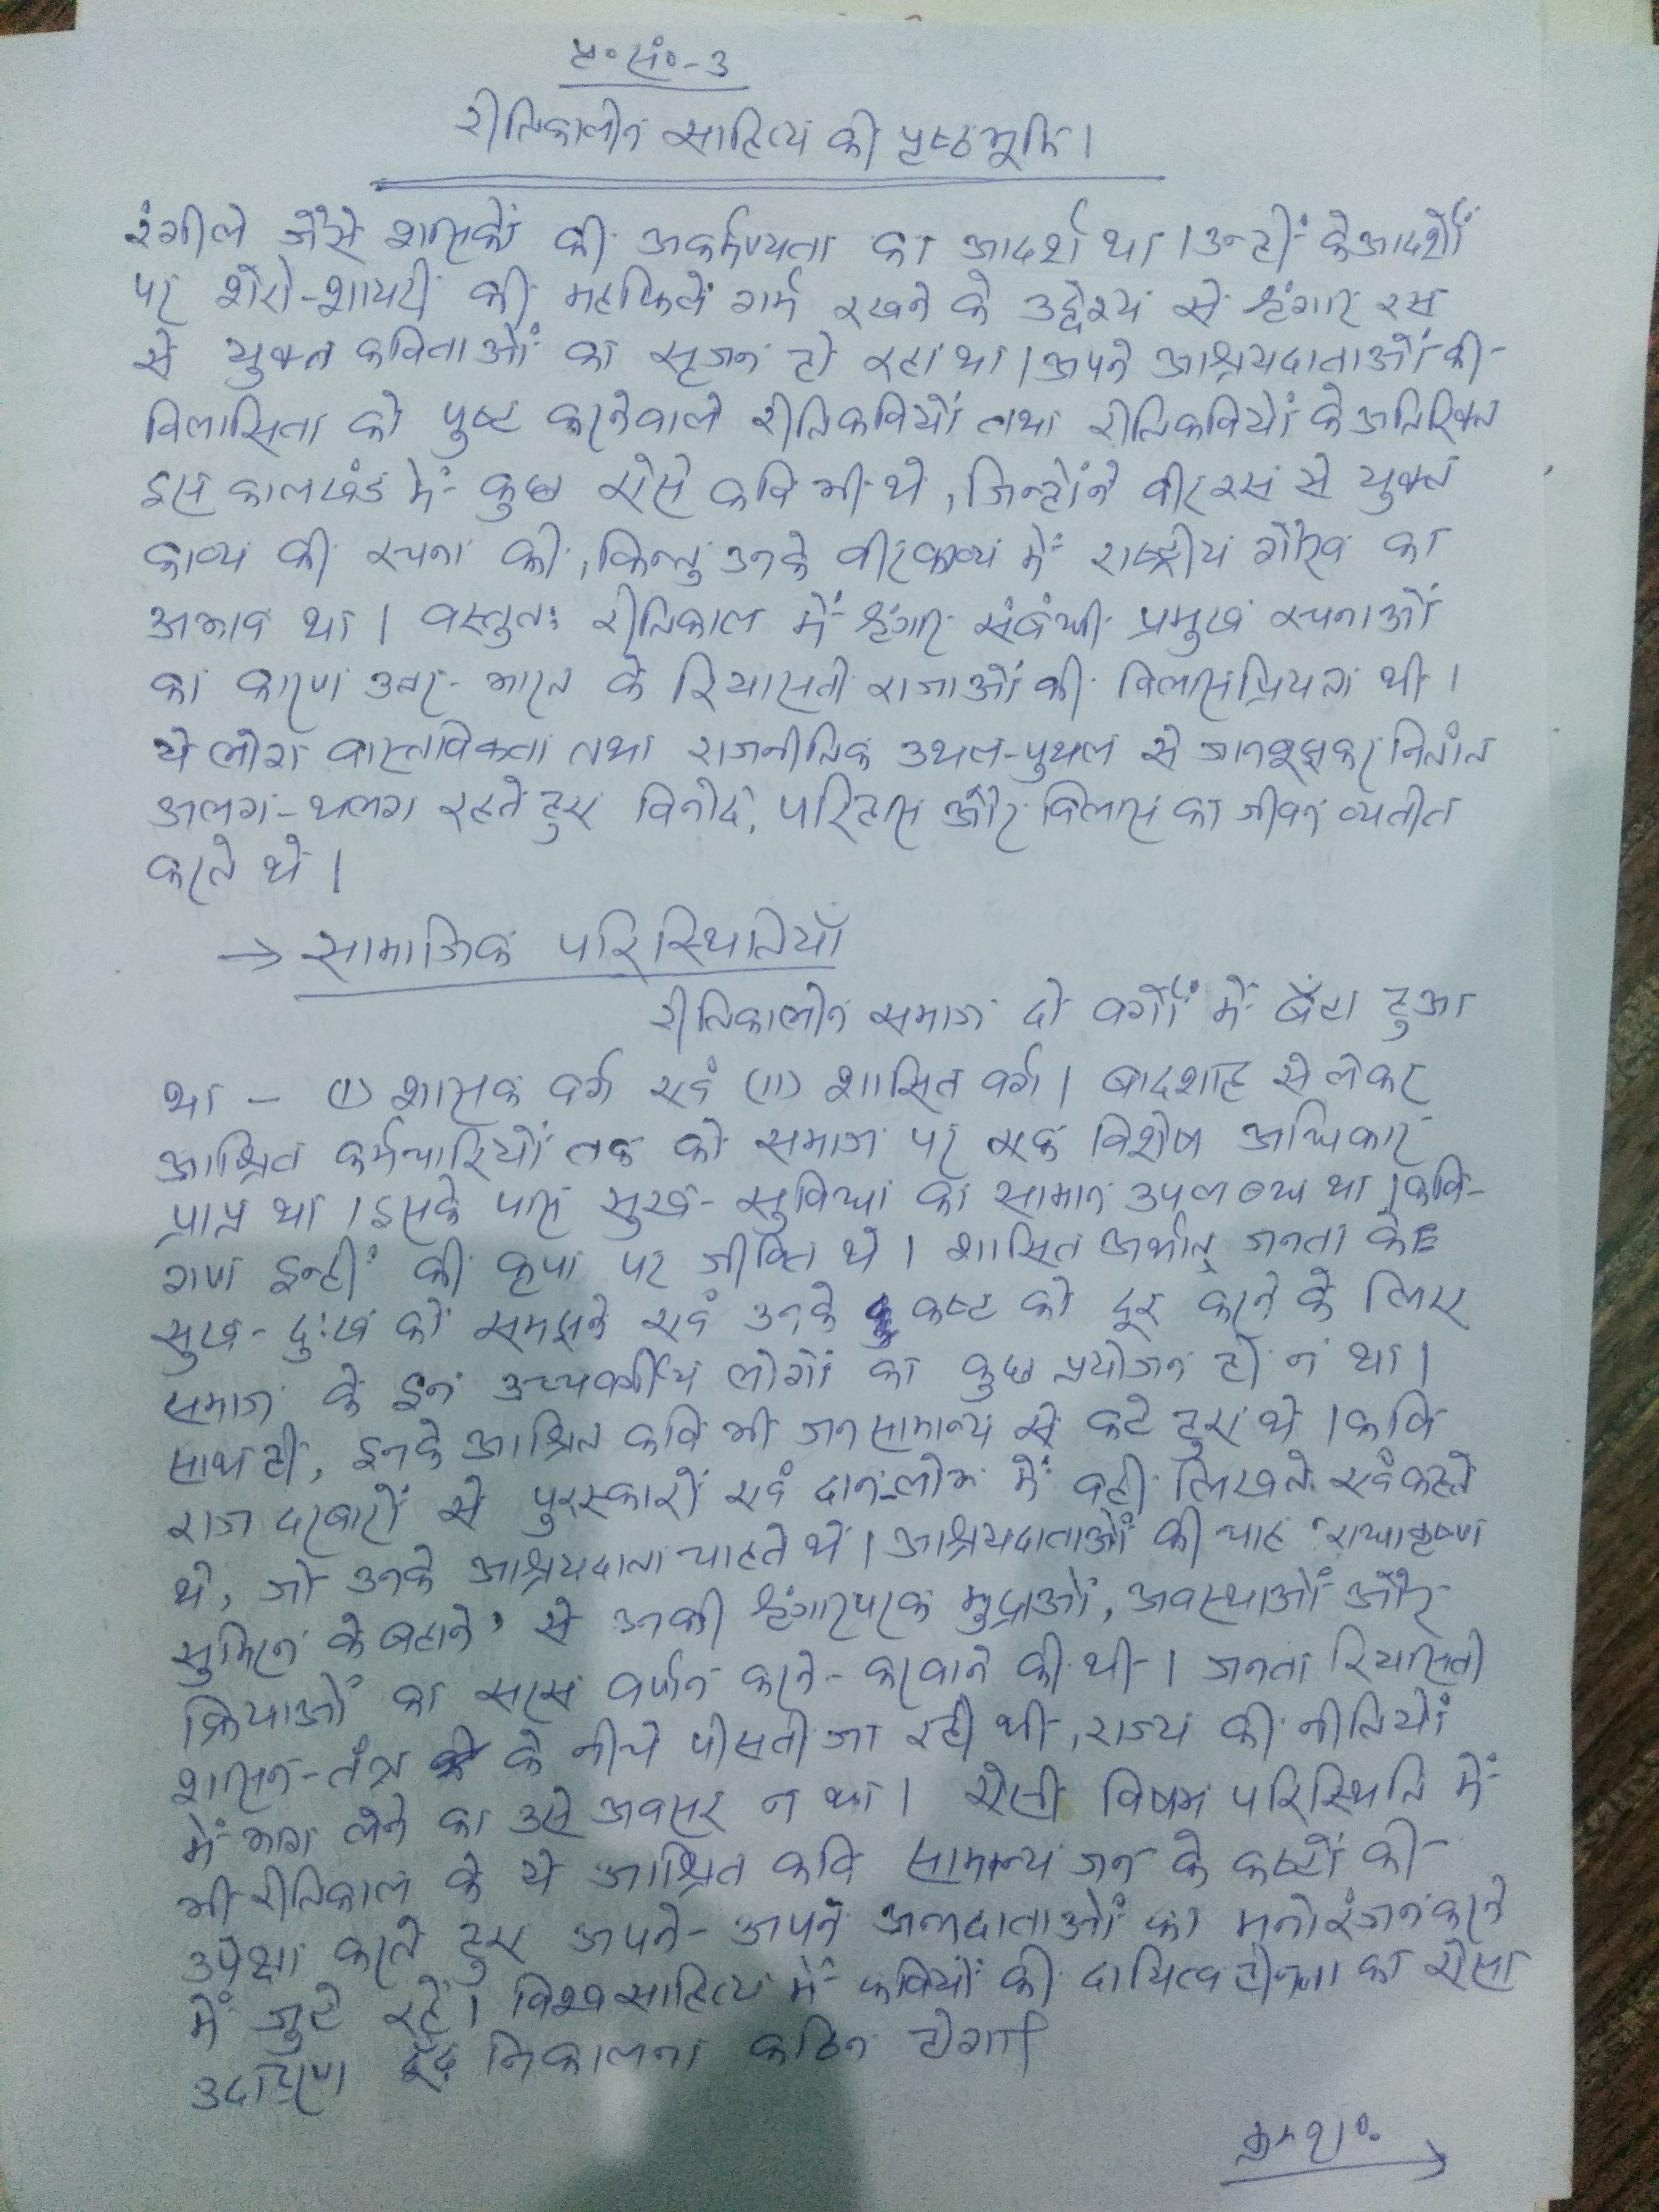 पृ॰सं॰-3
रीतिकालीन साहित्य की पृष्ठभूमि।
रंगीले जैसे शासकों की अकर्मण्यता का आदर्श था। उन्हीं के आदर्शों
पर शेरो-शायरी की महफिलें गर्म रखने के उद्देश्य से श्रृंगार रस
से युक्त कविताओं का सृजन हो रहा था। अपने आश्रयदाताओं की
विलासिता को पुष्ट करनेवाले रीतिकवियों तथा रीतिकवियों के अतिरिक्त
इस कालखंड में कुछ ऐसे कवि भी थे, जिन्होंने वीर रस से युक्त
काव्य की रचना की, किन्तु उनके वीरकाव्य में राष्ट्रीय गौरव का
अभाव था। वस्तुतः रीतिकाल में श्रृंगार संबंधी प्रमुख रचनाओं
का कारण उत्तर-भारत के रियासती राजाओं की विलासप्रियता थी।
ये लोग वास्तविकता तथा राजनीतिक उथल-पुथल से जानबूझकर नितांत
अलग-थलग रहते हुए विनोद, परिहास और विलास का जीवन व्यतीत
करते थे।
→ सामाजिक परिस्थितियाँ
रीतिकालीन समाज दो वर्गों में बँटा हुआ
था - (i) शासक वर्ग एवं (ii) शासित वर्ग। बादशाह से लेकर
आश्रित कर्मचारियों तक को समाज पर एक विशेष अधिकार
प्राप्त था। इसके पास सुख-सुविधा का सामान उपलब्ध था। कवि-
गण इन्हीं की कृपा पर जीवित थे। शासित अर्थात् जनता के
सुख-दुःख को समझने एवं उनके कष्ट को दूर करने के लिए
समाज के इन उच्चवर्गीय लोगों का कुछ प्रयोजन ही न था।
साथ ही, इनके आश्रित कवि भी जनसामान्य से कटे हुए थे। कवि
राज दरबारों से पुरस्कारों एवं दान-लोभ में वही लिखते एवं कहते
थे, जो उनके आश्रयदाता चाहते थे। आश्रयदाताओं की चाह 'राधाकृष्ण
सुमिरन के बहाने' से उनकी श्रृंगारपरक मुद्राओं, अवस्थाओं और
क्रियाओं का सरस वर्णन करने-करवाने की थी। जनता रियासती
शासन-तंत्र के नीचे पीसती जा रही थी, राज्य की नीतियों
में भाग लेने का उसे अवसर न था। ऐसी विषम परिस्थिति में
भी रीतिकाल के ये आश्रित कवि सामान्य जन के कष्टों की
उपेक्षा करते हुए अपने-अपने अन्नदाताओं का मनोरंजन करने
में जुटे रहे। विश्व साहित्य में कवियों की दायित्वहीनता का ऐसा
उदाहरण ढूँढ़ निकालना कठिन होगा।
क्रमशः →